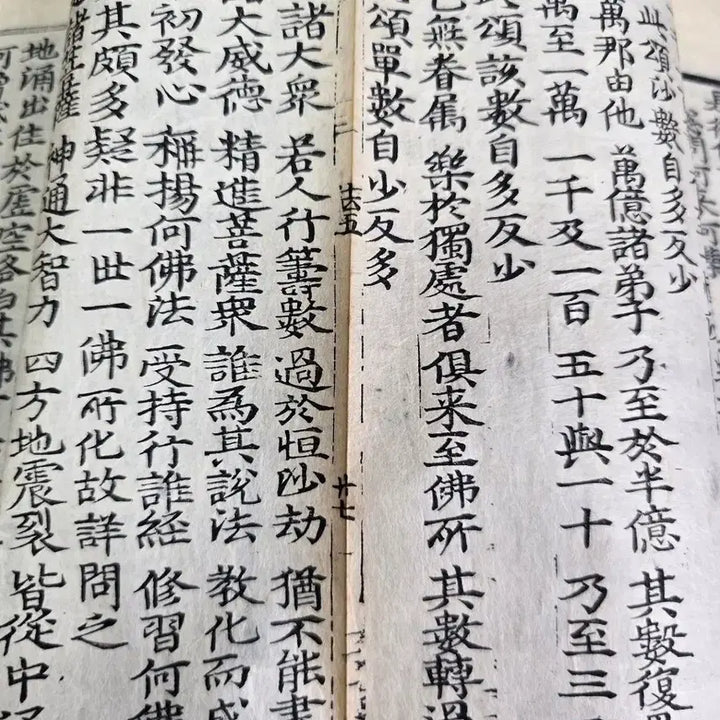 此頌沙數自多反少
萬那由他 萬億諸弟子 乃至於半億 其數復
萬至一萬 一千及一百 五十與一十 乃至三
頌該數自多反少
已無眷屬 樂於獨處者 俱来至佛所 其數轉過
頌單數自少反多
五 廿七
諸大衆 若人行籌數 過於恒沙劫 猶不能盡
大威德 精進菩薩衆 誰為其說法 教化而成
初發心 稱揚何佛法 受持行誰經 修習何佛
其頗多疑非一世一佛所化故詳問之
諸菩薩 神通大智力 四方地震裂 皆從中
地涌出住於虛空